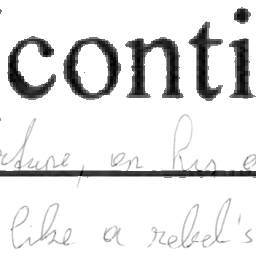 conti
on his
like a rebel's